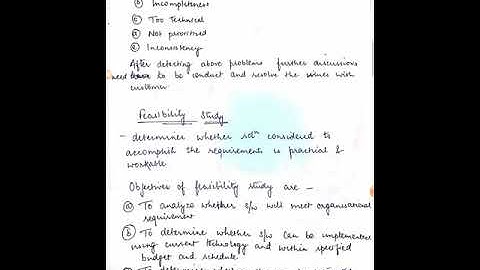 ⓑ Incompleteness
ⓒ Too Technical
ⓓ Not prioritised
ⓔ Inconsistency
After detecting above problems further discussions
need to be conduct and resolve the issues with
customer
Feasibility Study
- determines whether soln considered to
accomplish the requirements is practical &
workable
Objectives of feasibility study are –
ⓐ To analyze whether s/w will meet organisational
requirement
ⓑ To determine whether s/w can be implemented
using current technology and within specified
budget and schedule
ⓒ To determine whether